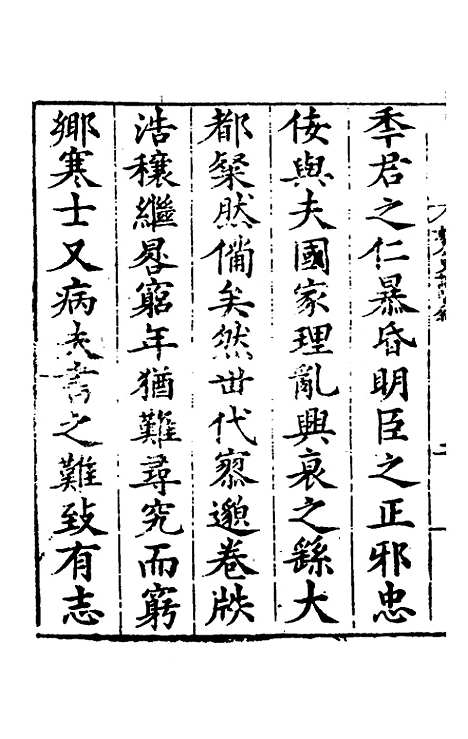 季君之仁暴昏明臣之正邪忠
佞與夫國家理亂興衰之繇大
都粲然僃矣然丗代寥邈卷牒
浩穰繼晷窮年猶難尋究而窮
鄉寒士又病夫書之難致有志